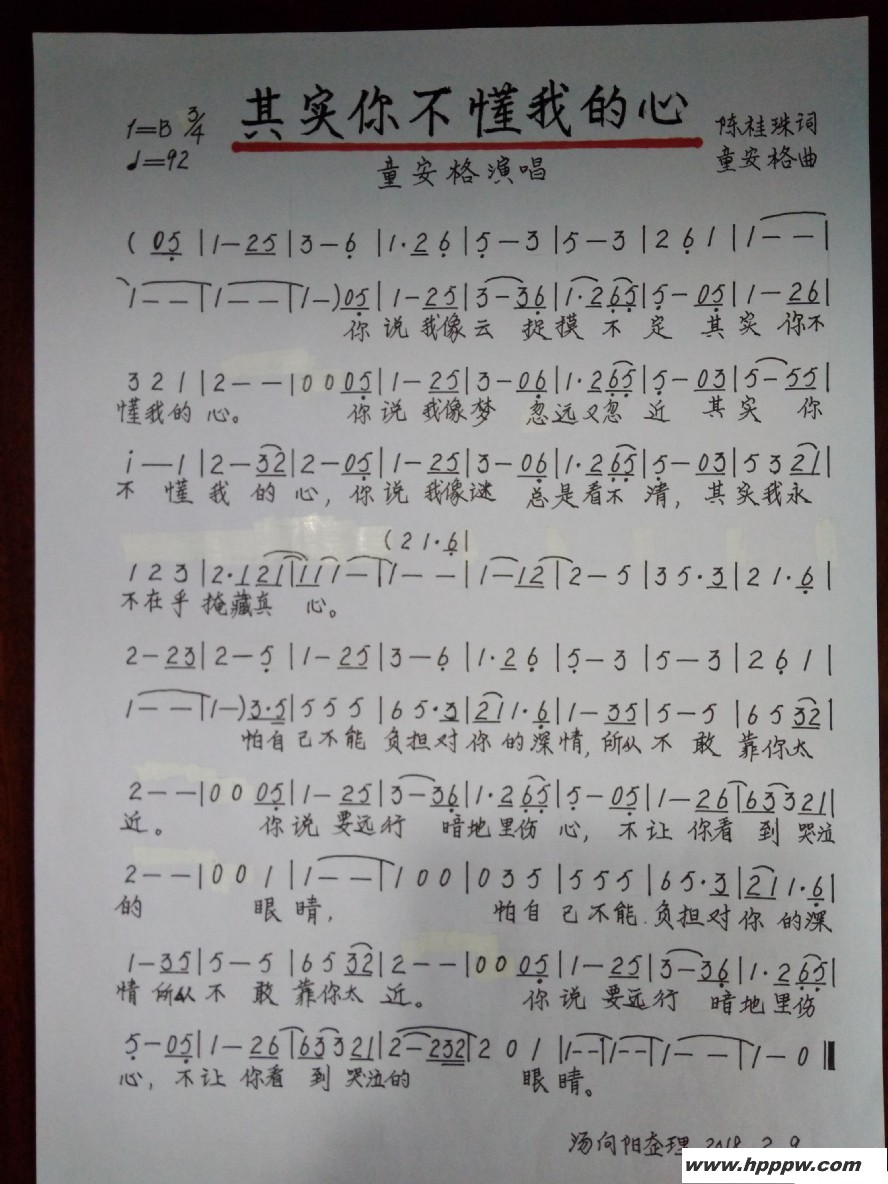 其实你不懂我的心
1=B 3/4
♩=92
陈桂珠词
童安格演唱
童安格曲
( 05 | 1–25 | 3–6 | 1·26 | 5–3 | 5–3 | 261 | 1–– |
1–– | 1–– | 1–) 05 | 1–25 | 3–36 | 1·265 | 5–05 | 1–26 |
你说我像云 捉摸不定 其实你不
321 | 2–– | 0005 | 1–25 | 3–06 | 1·265 | 5–03 | 5–55 |
懂我的心。 你说我像梦 忽远又忽近 其实你
i–1 | 2–32 | 2–05 | 1–25 | 3–06 | 1·265 | 5–03 | 5321 |
不懂我的心,你说我像谜 总是看不清,其实我永
(21·6 |
123 | 2·121 | 111– | 1–– | 1–12 | 2–5 | 35·3 | 21·6 |
不在乎掩藏真心。
2–23 | 2–5 | 1–25 | 3–6 | 1·26 | 5–3 | 5–3 | 261 |
1–– | 1–) 3·5 | 555 | 65·3 | 211·6 | 1–35 | 5–5 | 6532 |
怕自己不能负担对你的深情,所以不敢靠你太
2–– | 0005 | 1–25 | 3–36 | 1·265 | 5–05 | 1–26 | 63321 |
近。 你说要远行 暗地里伤心, 不让你看到哭泣
2–– | 001 | 1–– | 100 | 035 | 555 | 65·3 | 211·6 |
的 眼睛, 怕自己不能负担对你的深
1–35 | 5–5 | 6532 | 2–– | 0005 | 1–25 | 3–36 | 1·265 |
情所以不敢靠你太近。 你说要远行 暗地里伤
5–05 | 1–26 | 63321 | 2–232 | 201 | 1–– | 1–– | 1–– | 1–0 ‖
心,不让你看到哭泣的 眼睛。
汤向阳整理 2018.2.9
www.hpppw.com